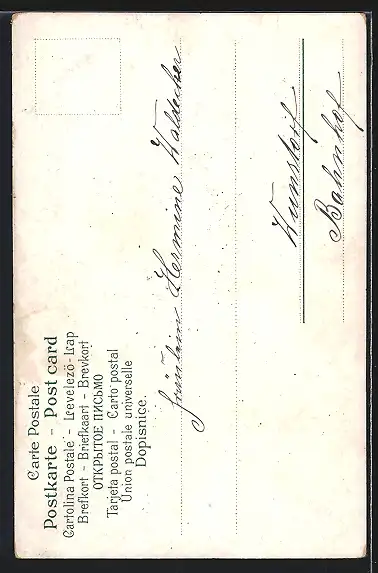 Carte Postale
Postkarte - Post card
Cartolina Postale - Levelező-Lap
Brefkort - Briefkaart - Brevkort
ОТКРЫТОЕ ПИСЬМО
Tarjeta postal - Carto postal
Union postale universelle
Dopisnice.
Fräulein Hermine Waldecker
Wunstorf
Bahnhof